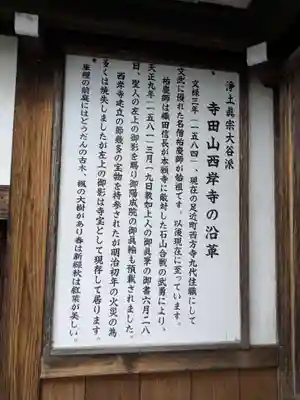 浄土真宗大谷派
寺田山西岸寺の沿革
文禄三年(一五八四)、現在の足近町西方寺九代住職にして
文武に優れた名僧祐慶師が始祖です。以後現在に至っています。
祐慶師は織田信長が本願寺に敵対した石山合戦の武勇により、
天正九年(一五八一)三月一九日教如上人の御真筆の御書六月二八
日、聖人の左上の御影を賜り御陽成院の御真翰も預載されました。
西岸寺建立の節幾多の宝物を持参されたが明治初年の火災の為
多くは焼失しましたが左上の御影は寺宝として現存して居ります。
庫裡の前庭にはどうだんの古木、楓の大樹があり春は新緑秋は紅葉が美しい。